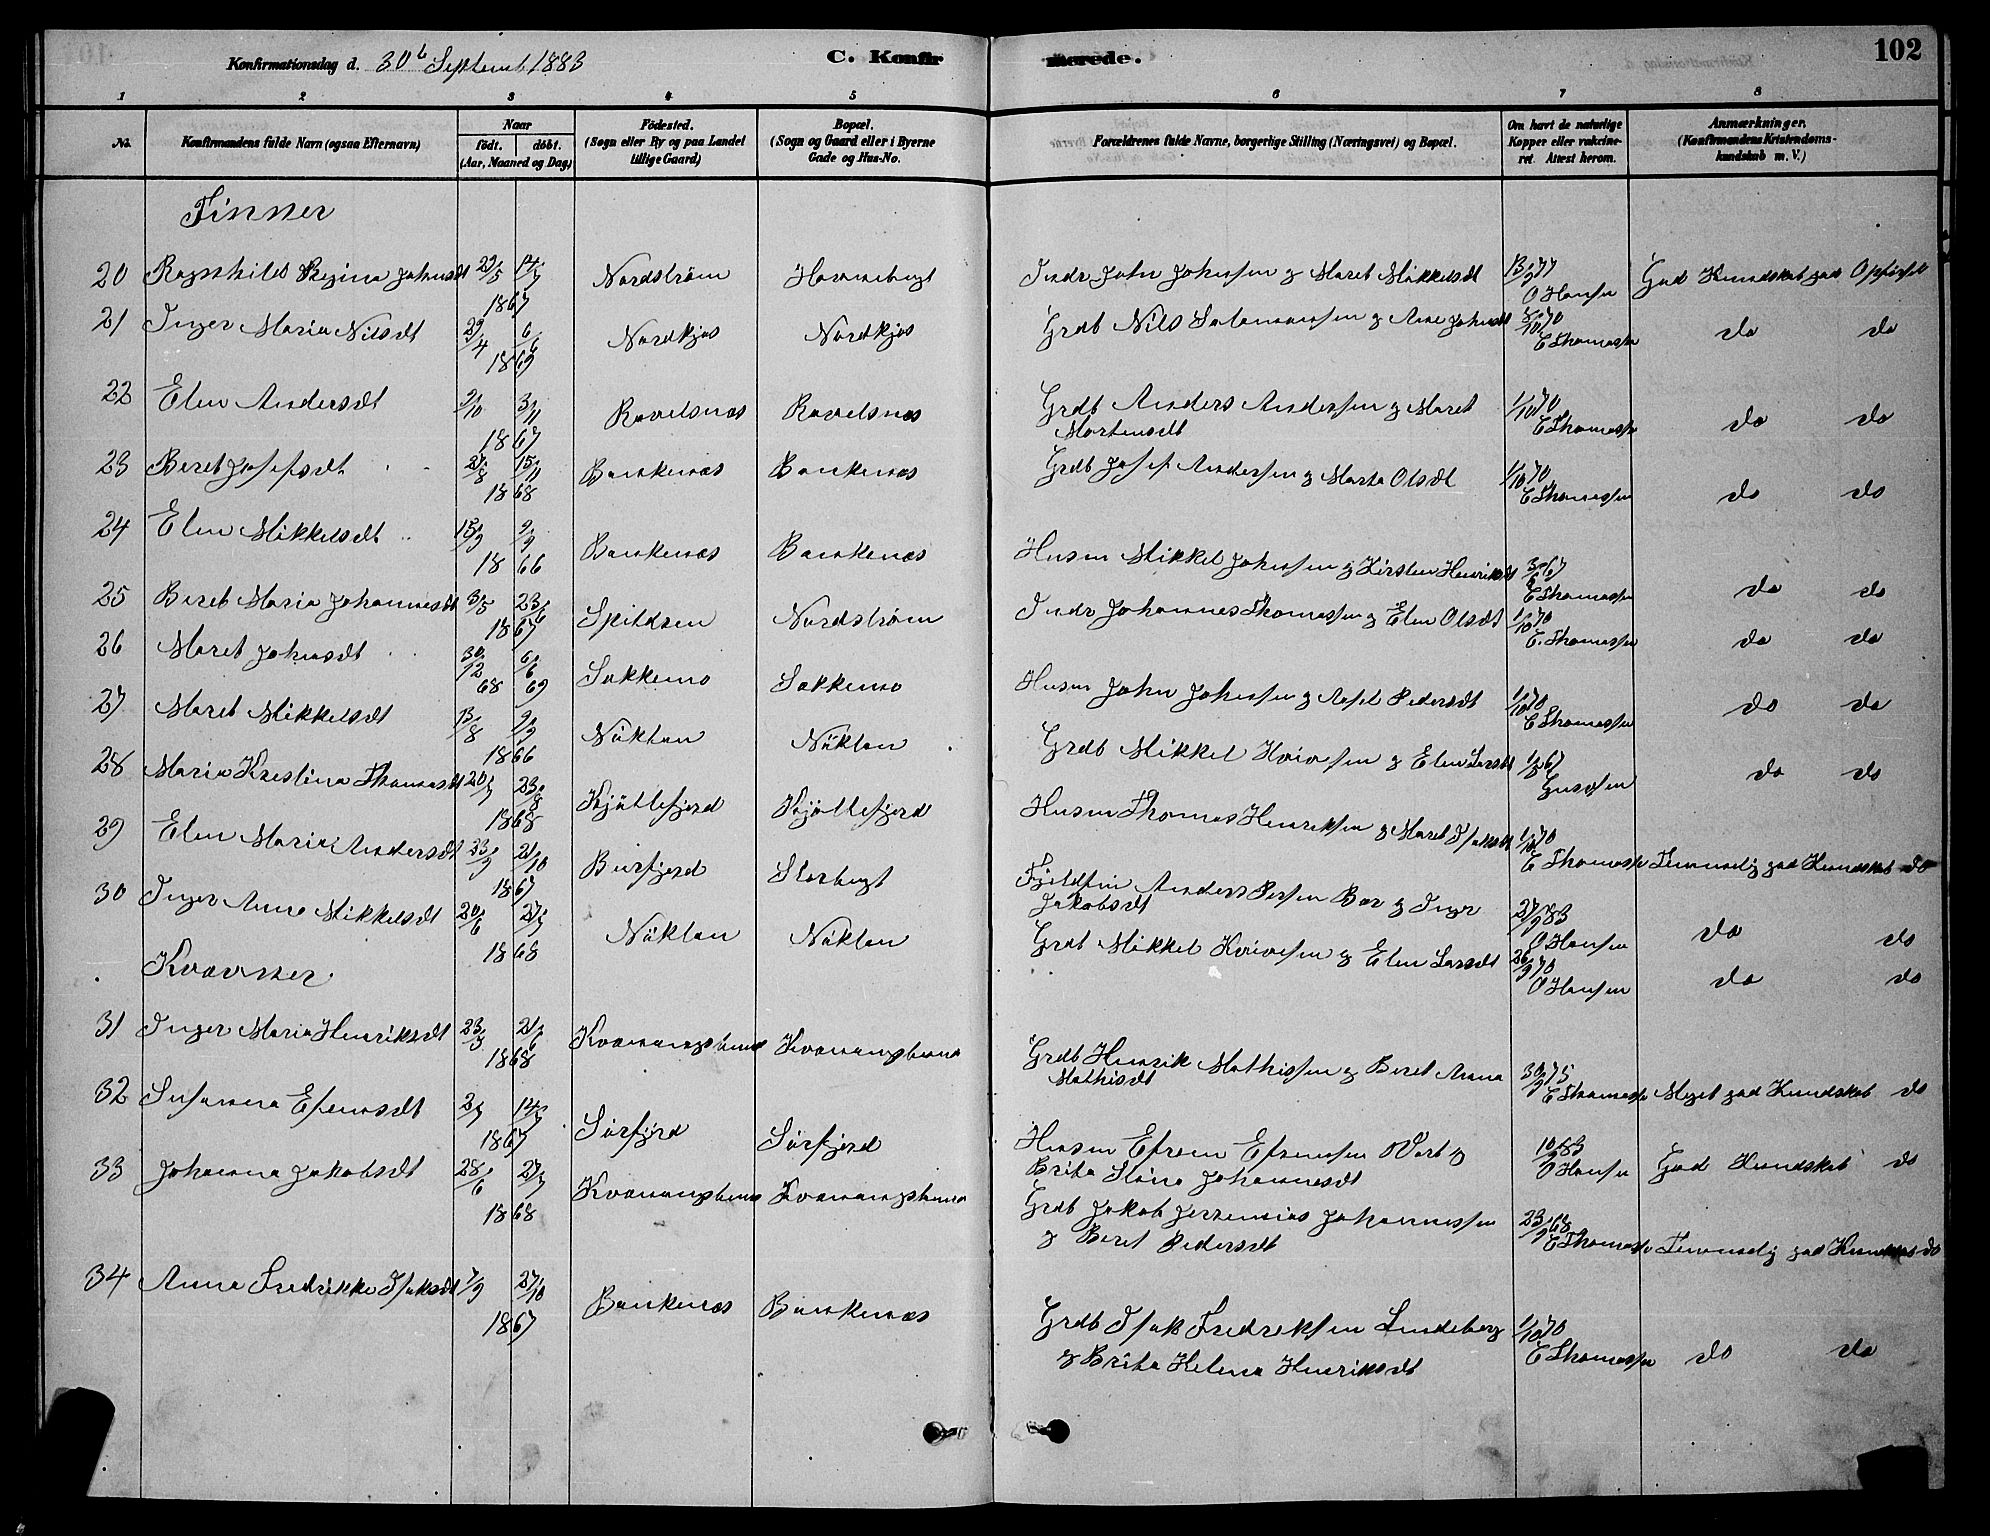 102
Konfirmationsdag d. 30t Septemb 1883 C. Konfirmerede.
1 2 3 4 5 6 7 8
No. Konfirmandens fulde Navn (ogsaa Efternavn) Naar født. døbt. (Aar, Maaned og Dag) Fødested. (Sogn eller By og paa Landet tillige Gaard) Bopæl. (Sogn og Gaard eller i Byerne Gade og Hus-No. Forældrenes fulde Navne, borgerlige Stilling (Næringsvei) og Bopæl. Om havt de naturlige Kopper eller vakcineret. Attest herom. Anmærkninger. (Konfirmandens Kristendomskundskab m. V.)
Finner
20 Ragnhild Regina Johnsdt 22/5 14/7 1867 Nordstrøm Havnebugt Indr John Johnsen g Maret Mikkelsdt 77 O Hansen God Kundskab god Opførsel
21 Inger Maria Nilsdt 29/4 6/6 1869 Nordkjos Nordkjos Grdb Nils Salamonsen g Ane Johnsdt 8/10 70 E Thomassen do do
22 Elen Andersdt 2/10 3/11 1867 Ravelsnæs Ravelsnæs Grdb Anders Andersen g Maret
Mortensdt 1/10 70 E Thomassen do do
23 Beret Josefsdt 27/8 15/11 1868 Bankenæs Bankenæs Grdb Josef Andersen g Marta Olsdt 1/10 70 E Thomassen do do
24 Elen Mikkelsdt 9/9 1866 Bankenæs Bankenæs Husm Mikkel Johnsen g Kirsten Henriksdt 3/6 67 E Thomassen do do
25 Beret Maria Johannesdt 3/5 23/6 1867 Spildren Nordstrøm Indr Johannes Thomassen g Elen Olsdt 1/10 70 E. Thomassen do do
26 Maret Johnsdt 30/12 68 6/6 69 Sakkemo Sakkemo Husm John Johnsen g Pedersdt 1/10 70 E Thomassen do do
27 Maret Mikkelsdt 13/8 9/9 1866 Nöklan Nöklan Grdb Mikkel Hoivesen g Elen Larsdt 67 do do
28 Maria Kristina Thomasdt 20/7 23/8 1868 Kjöllefjord Kjöllefjord Husm Thomas Henriksen g Maret Isaksdt 1/10 70 E Thomassen Temmelig god Kundskab do
29 Elen Maria Andersdt 23/9 21/10 1867 Burfjord Storbugt Fjeldfin Anders Persen Bær g Inger
Jakobsdt 27/9 83 O Hansen do do
30 Inger Anna Mikkelsdt 20/6 27/7 1868 Nöklan Nöklan Grdb Mikkel Hoivesen g Elen Larsdt 26/9 70 O Hansen do do
Kvænner
31 Inger Maria Henriksdt 23/3 21/6 1868 Kvænangsbund Kvænangsbund Grdb Henrik Mathissen g Beret Anna
Mathisdt 30/9 75 E Thomassen Meget god Kundskab do
32 Susanna Efremsdt 2/7 14/7 1867 Sörfjord Sörfjord Husm Efrem Efremsen g
Brita Stina Johannesdt 83 O Hansen God Kundskab do
33 Johanna Jakobsdt 28/6 27/7 1868 Kvænangsbund Kvænangsbund Grdb Jakob Jeremias Johannessen
g Beret Pedersdt 23/9 68 E Thomassen Temmelig god Kundskab do
34 Anna Fredrikke Isaksdt 7/9 27/10 1867 Bankenæs Bankenæs Grdb Isak Fredriksen Lindeberg
g Brita Helena Henriksdt 1/10 70 E Thomassen do do